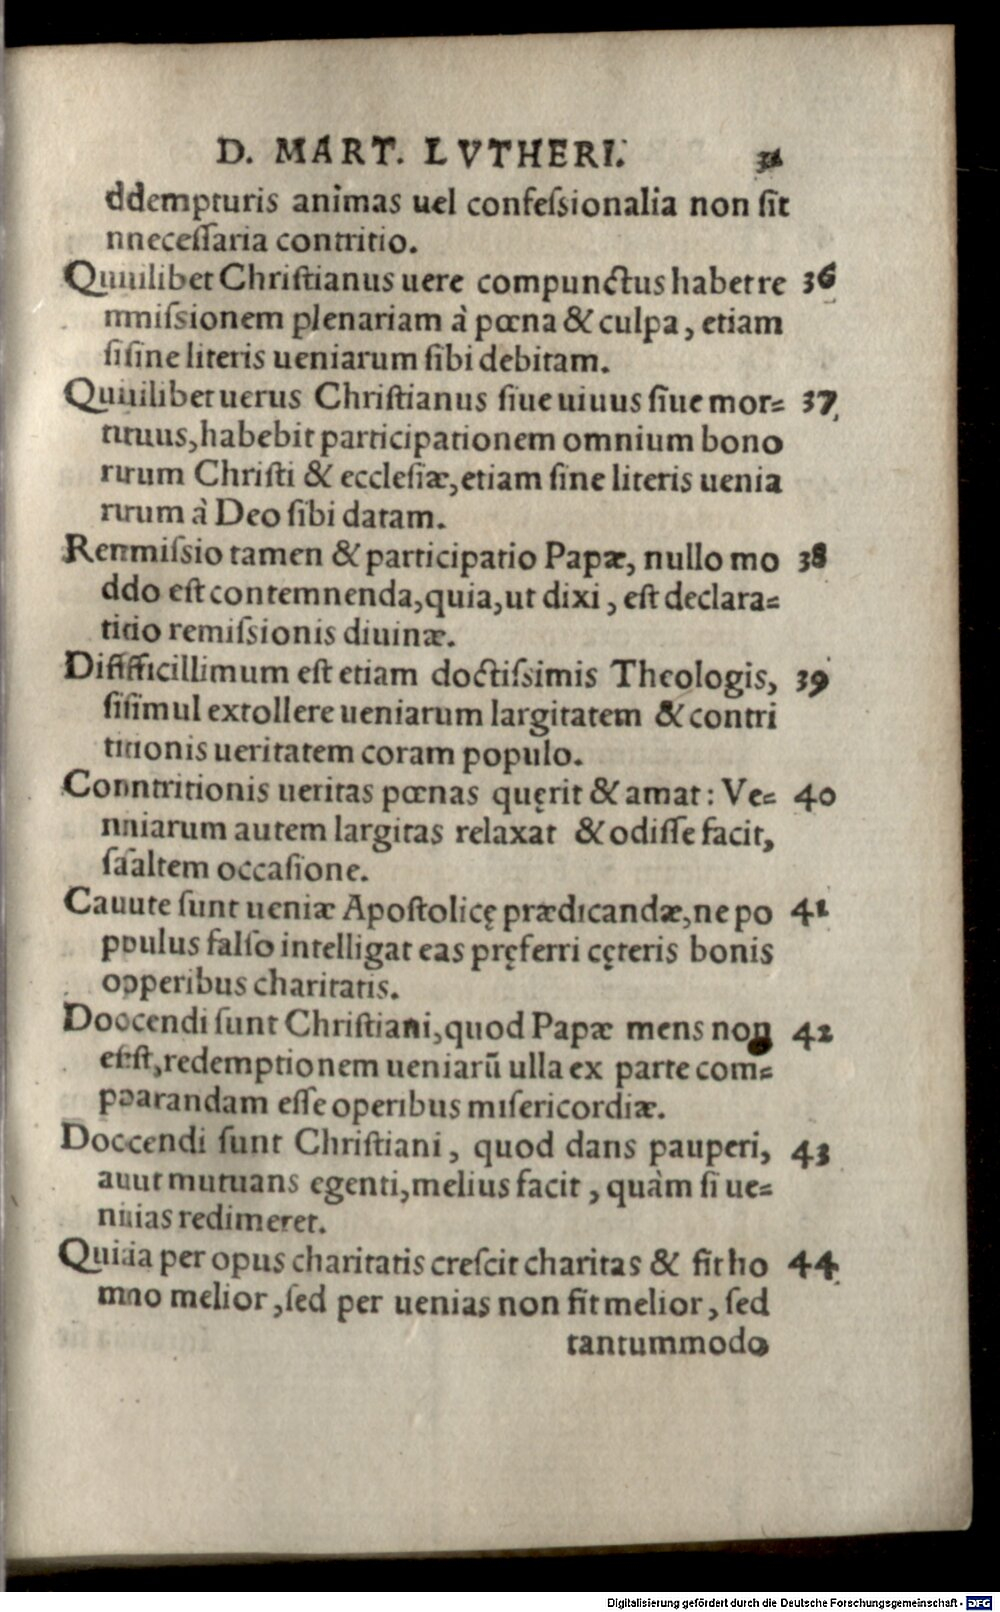 D. MART. LVTHERI.
ddempturis animas uel confeſsionalia non ſit
nneceſſaria contritio.
Quuilibet Chriſtianus uere compunctus habet re 36
mmiſsionem plenariam à pœna & culpa, etiam
ſiſine literis ueniarum ſibi debitam.
Quuilibet uerus Chriſtianus ſiue uiuus ſiue mor= 37
ttuus, habebit participationem omnium bono
rrum Chriſti & eccleſiæ, etiam ſine literis uenia
rrum à Deo ſibi datam.
Remmiſsio tamen & participatio Papæ, nullo mo 38
ddo eſt contemnenda, quia, ut dixi, eſt declara=
titio remiſsionis diuinæ.
Diffficillimum eſt etiam doctiſsimis Theologis, 39
ſiſimul extollere ueniarum largitatem & contri
titionis ueritatem coram populo.
Conntritionis ueritas pœnas quęrit & amat: Ve= 40
nniarum autem largitas relaxat & odiſſe facit,
ſaſaltem occaſione.
Cauute ſunt ueniæ Apoſtolicę prædicandæ, ne po 41
ppulus falſo intelligat eas pręferri cęteris bonis
opperibus charitatis.
Doocendi ſunt Chriſtiani, quod Papæ mens non 42
eeſt, redemptionem ueniarū ulla ex parte com=
pparandam eſſe operibus miſericordiæ.
Doccendi ſunt Chriſtiani, quod dans pauperi, 43
auut mutuans egenti, melius facit, quàm ſi ue=
nnias redimeret.
Quiia per opus charitatis creſcit charitas & fit ho 44
mmo melior, ſed per uenias non fit melior, ſed
tantummodo
Digitalisierung gefördert durch die Deutsche Forschungsgemeinschaft - DFG